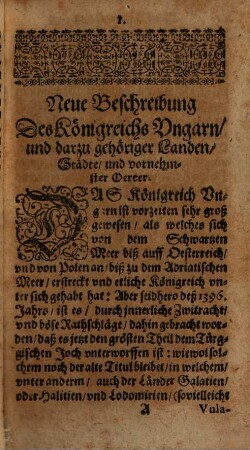 1.
Neue Beschreibung
Des Königreichs Vngarn/
und darzu gehöriger Landen/
Städte/ und vornehm-
ster Oerter.
DAS Königreich Vn-
garn ist vorzeiten sehr groß
gewesen/ als welches sich
von dem Schwartzen
Meer biß auff Oesterreich/
vnd von Polen an/ biß zu dem Adriatischen
Meer/ erstreckt vnd etliche Königreich vn-
ter sich gehabt hat: Aber seidhero deß 1396.
Jahrs/ ist es/ durch innerliche Zwitracht/
vnd böse Rathschläge/ dahin gebracht wor-
den/ daß es jetzt den grösten Theil dem Türg-
gischen Joch vnterworffen ist: wiewol sol-
chem noch der alte Titul bleibet/ in welchem/
vnter anderm/ auch der Länder Galatien/
oder Halitien/ vnd Lodomirien/ (sovielleicht
A Vula-